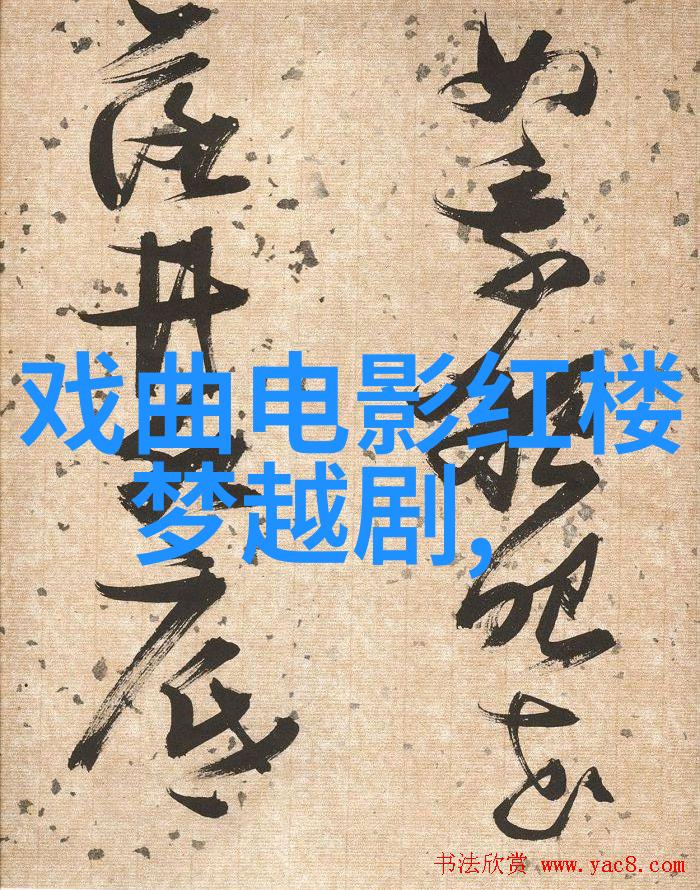 如
落井底
戏曲电影红楼
梦越剧,
书法欣赏 www.yac8.com